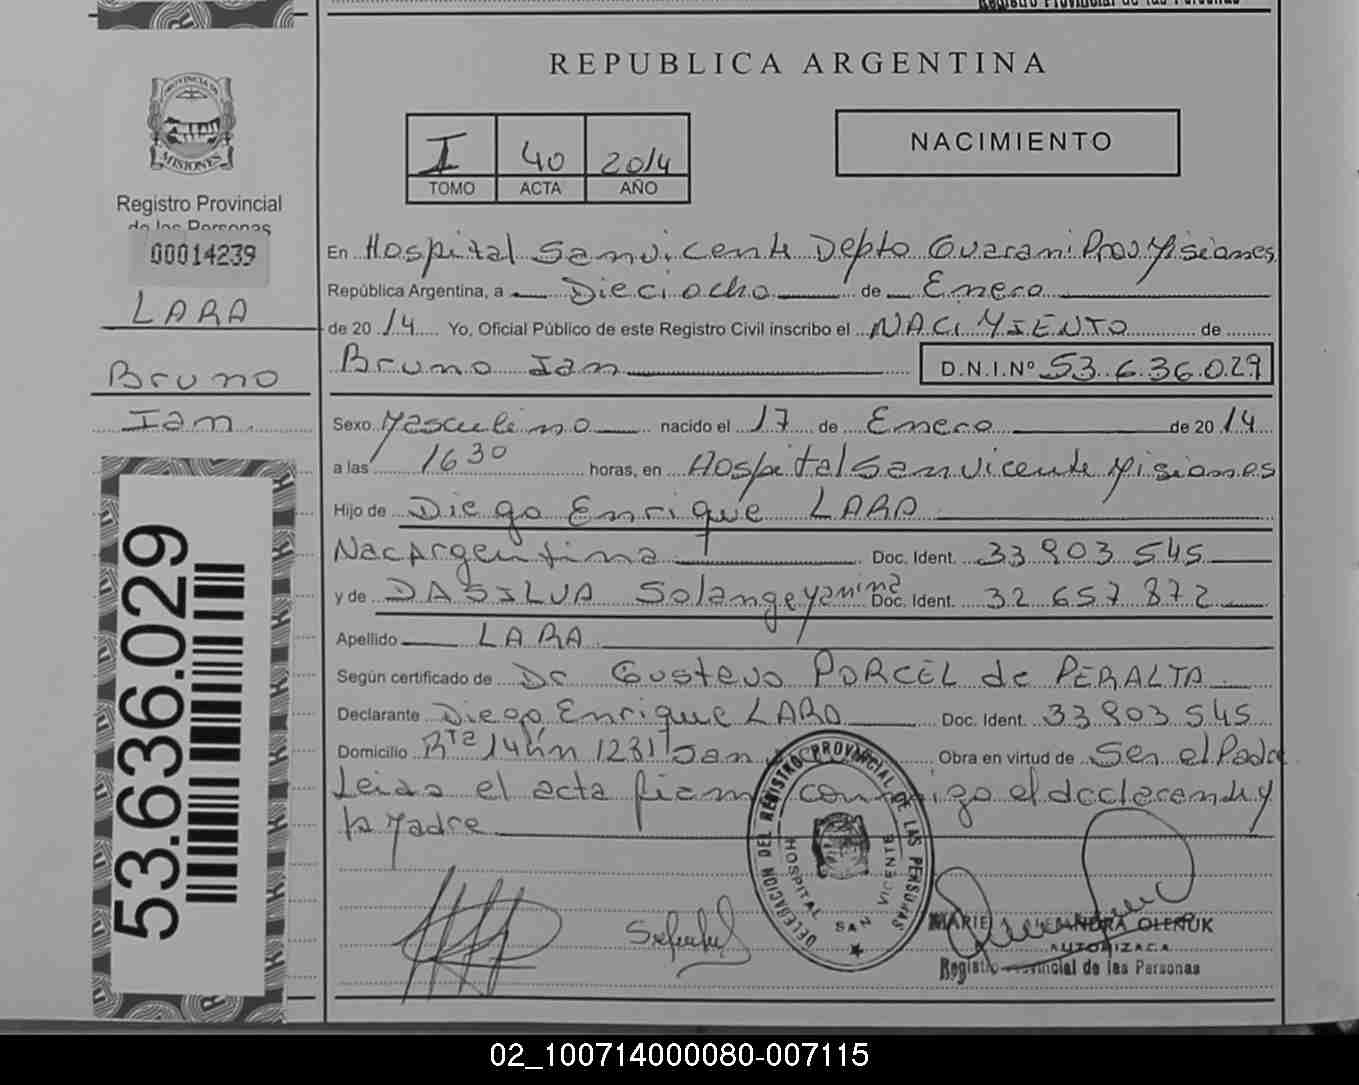 Registro Provincial de las Personas
REPUBLICA ARGENTINA
I 40 2014
TOMO ACTA AÑO
NACIMIENTO
PROVINCIA DE
MISIONES
Registro Provincial
de las Personas
00014239
LARA
Bruno
Ian.
53.636.029
En Hospital San Vicente Depto Guarani Prov Misiones
República Argentina, a Dieciocho de Enero
de 20 14 Yo, Oficial Público de este Registro Civil inscribo el NACIMIENTO de
Bruno Ian D.N.I.Nº 53.636.029
Sexo Masculino nacido el 17 de Enero de 20 14
a las 16 30 horas, en Hospital San Vicente Misiones
Hijo de Diego Enrique LARA
Nac Argentina Doc. Ident. 33 803 545
y de DASILVA Solange Yanina Doc. Ident. 32 657 872
Apellido LARA
Según certificado de Dr Gustavo PORCEL de PERALTA
Declarante Diego Enrique LARA Doc. Ident. 33 803 545
Domicilio Rta 14 1231 San Obra en virtud de Ser el Padre
Leida el acta firma conmigo el declarante y
la Madre
DELEGACION DEL REGISTRO PROVINCIAL DE LAS PERSONAS
HOSPITAL SAN VICENTE
MARIELA ALEJANDRA OLEÑUK
AUTORIZADA
Registro Provincial de las Personas
02_100714000080-007115